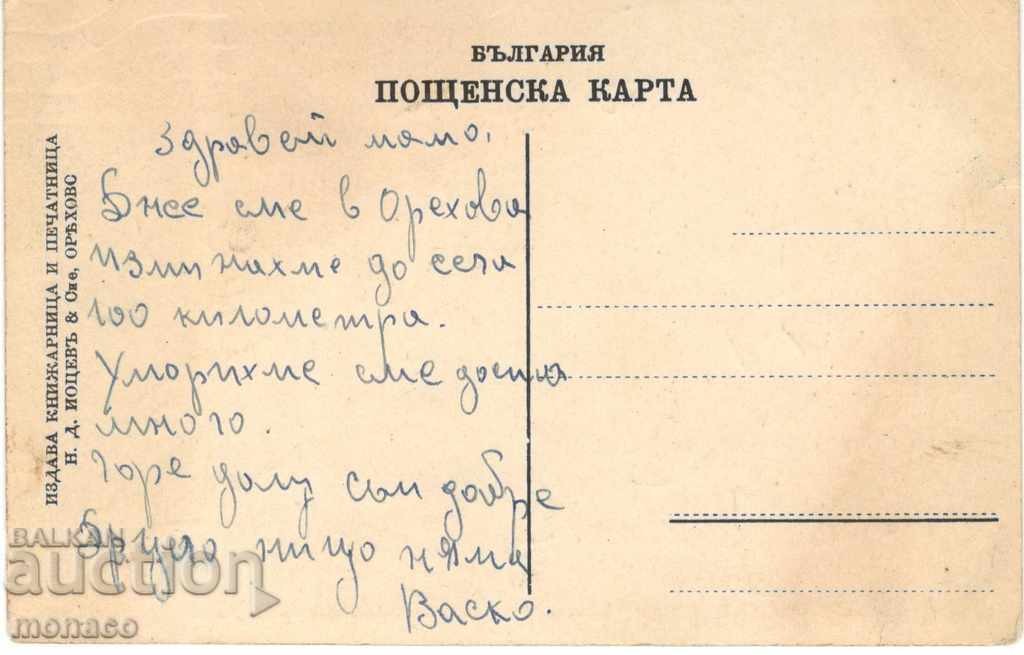 БЪЛГАРИЯ
ПОЩЕНСКА КАРТА
ИЗДАВА КНИЖАРНИЦА И ПЕЧАТНИЦА
Н. Д. ИОЦЕВЪ & Сие, ОРѢХОВО
Здравей мамо,
Днес сме в Орехово
изминахме до сега
100 километра.
Уморихме сме доста
много.
Горе долу съм добре
Друго нищо няма
Васко.
BALKAN
auction
monaco